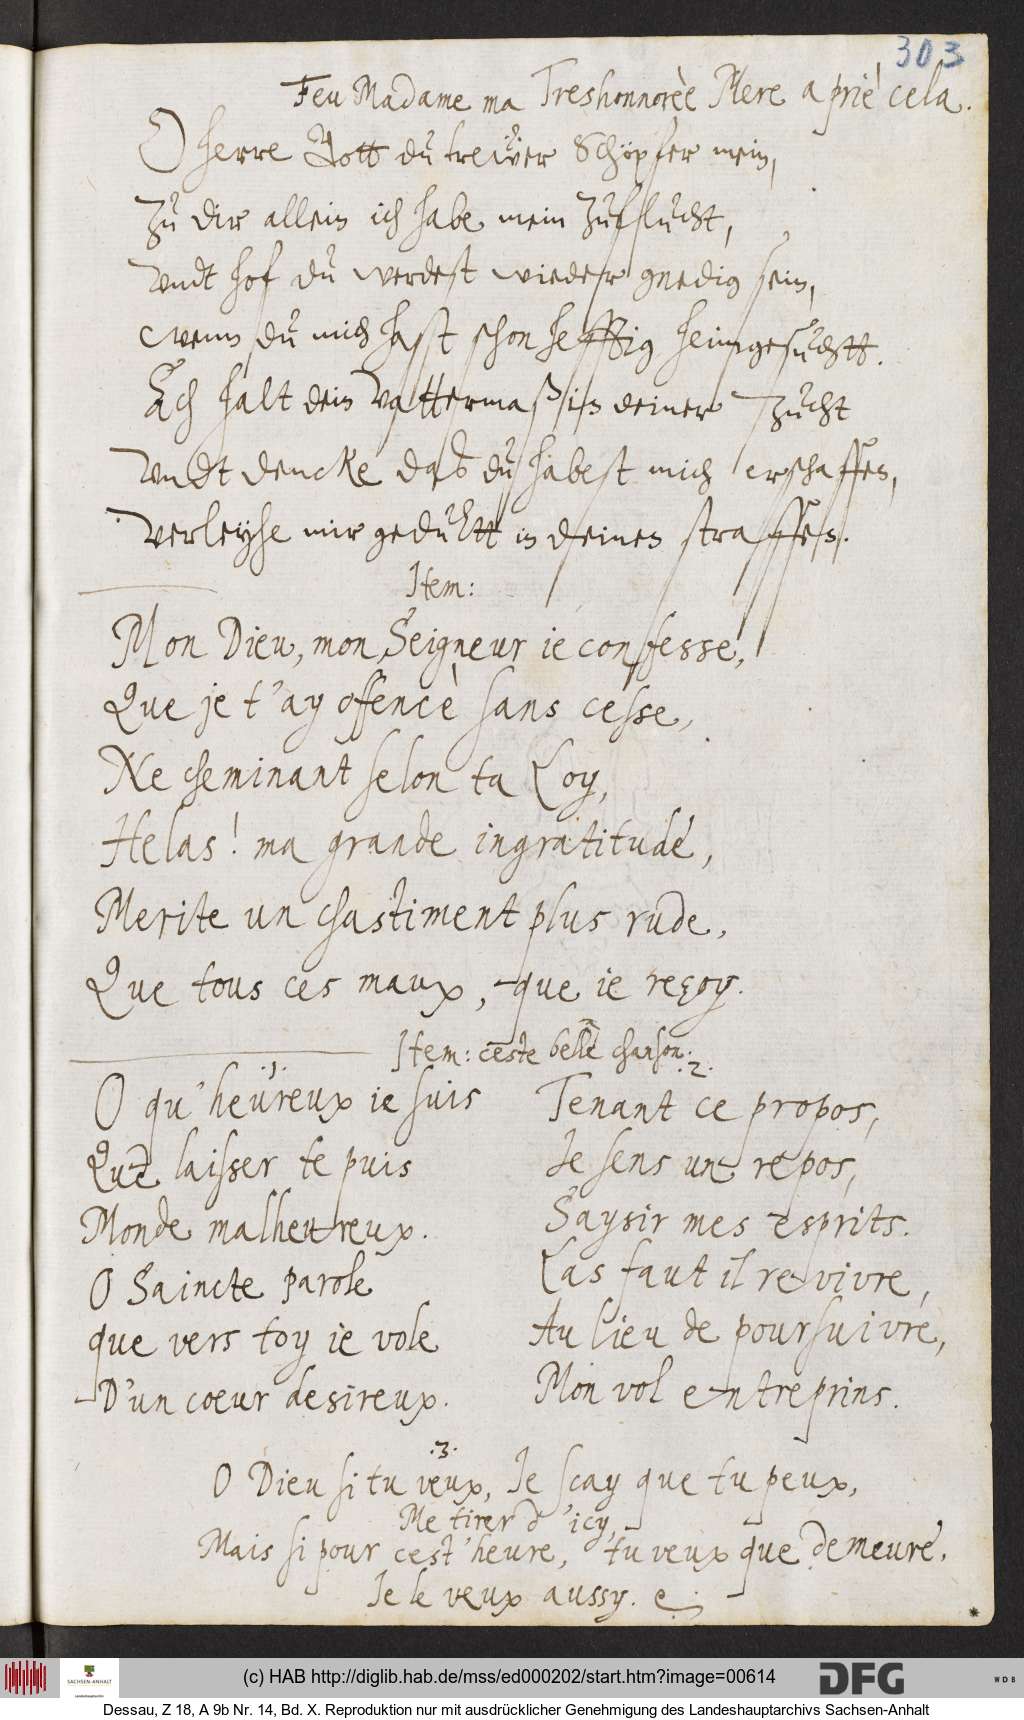 303
Feu Madame ma Treshonnorèe Mere a prié cela.
O herre Gott du trewer Schöpfer mein,
Zu dir allein ich habe mein Zuflucht,
Undt hof du werdest wieder gnedig sein,
Wenn du mich hast schon hefftig heimgesuchtt.
Ach halt dein Vattermaß in deiner Zucht
Undt dencke daß du habest mich erschaffen,
Verleyhe mir gedultt in deinen straffen.
Item:
Mon Dieu, mon Seigneur ie confesse,
Que je t'ay offencè sans cesse,
Ne cheminant selon ta Loy,
Helas! ma grande ingratitude,
Merite un chastiment plus rude,
Que tous ces maux, que ie reçoy.
Item: ceste belle chanson.
.1.
O qu'heureux ie suis
Que laisser te puis
Monde malheureux.
O Saincte parole
que vers toy ie vole
D'un coeur desireux.
.2.
Tenant ce propos,
Je sens un repos,
Saysir mes esprits.
Las faut il revivre,
Au lieu de poursuivre,
Mon vol entreprins.
.3.
O Dieu si tu veux, Je scay que tu peux,
Me tirer d'icy,
Mais si pour cest'heure, tu veux que demeure.
Je le veux aussy.
SACHSEN-ANHALT
Landeshauptarchiv
(c) HAB http://diglib.hab.de/mss/ed000202/start.htm?image=00614
DFG
WDB
Dessau, Z 18, A 9b Nr. 14, Bd. X. Reproduktion nur mit ausdrücklicher Genehmigung des Landeshauptarchivs Sachsen-Anhalt